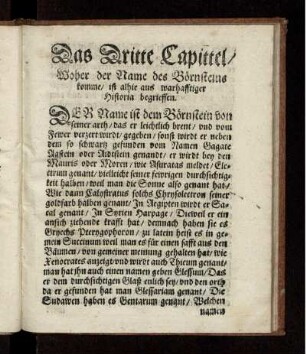 Das Dritte Capittel/
Woher der Name des Börnsteins
komme/ ist alhie aus warhafftiger
Historia begrieffen.
DER Name ist dem Börnstein von
seiner arth/ das er leichtlich brent/ vnd vom
Fewer verzert wirdt/ gegeben/ sonst wirdt er neben
dem so schwartz gefunden vom Namen Gagate
Agstein oder Aidtstein genandt/ er wirdt bey den
Mauris oder Moren/ wie Asiuratas meldet/ Ele⸗
ctrum genant/ vielleicht seiner fewrigen durchsichtig⸗
keit halben/ weil man die Sonne also genant hat/
Wie dann Calystratus solchs Chryselectron seiner
goldfarb halben genant/ In Aegipten wirdt er Sa⸗
cal genant/ In Syrien Harpage/ Dieweil er ein
ansich ziehende krafft hat/ demnach haben sie es
Gryechs Pterygophoron/ zu latein heist es in ge⸗
mein Succinum weil man es für einen safft aus den
Bäumen/ von gemeiner meinung gehalten hat/ wie
Xenocrates anzeigt vnd wirdt auch Thieum genant/
man hat ihn auch einen namen geben Glessum/ Das
er dem durchsichtigen Glaß enlich sey/ vnd den orth
da er gefunden hat man Glessariam genant/ Die
Sudawen haben es Gentarum genant/ Welchen
namen